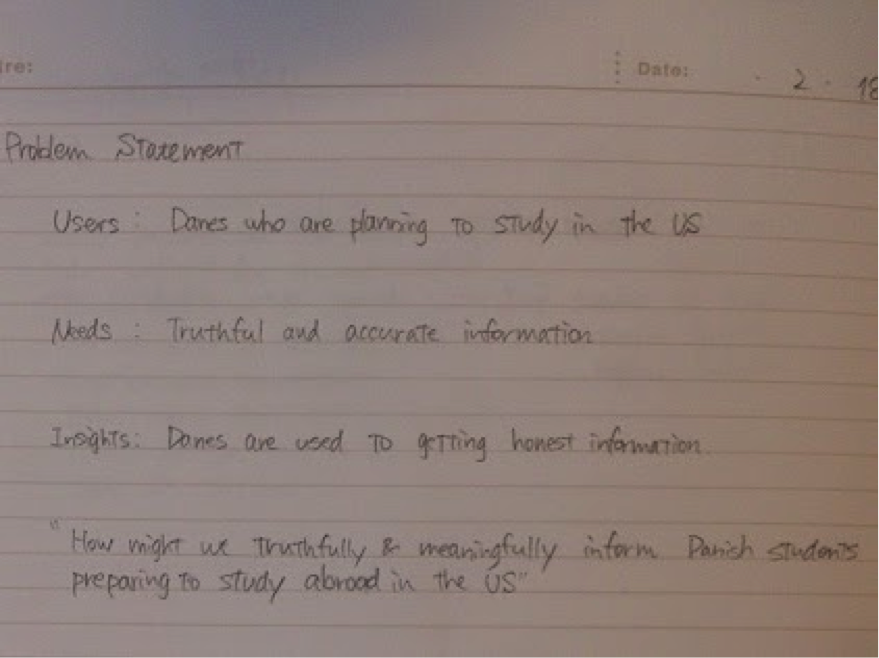 Date: · 2 · 18
Problem Statement
Users : Danes who are planning to study in the US
Needs : Truthful and accurate information
Insights: Danes are used to getting honest information.
"How might we truthfully & meaningfully inform Danish students
preparing to study abroad in the US"